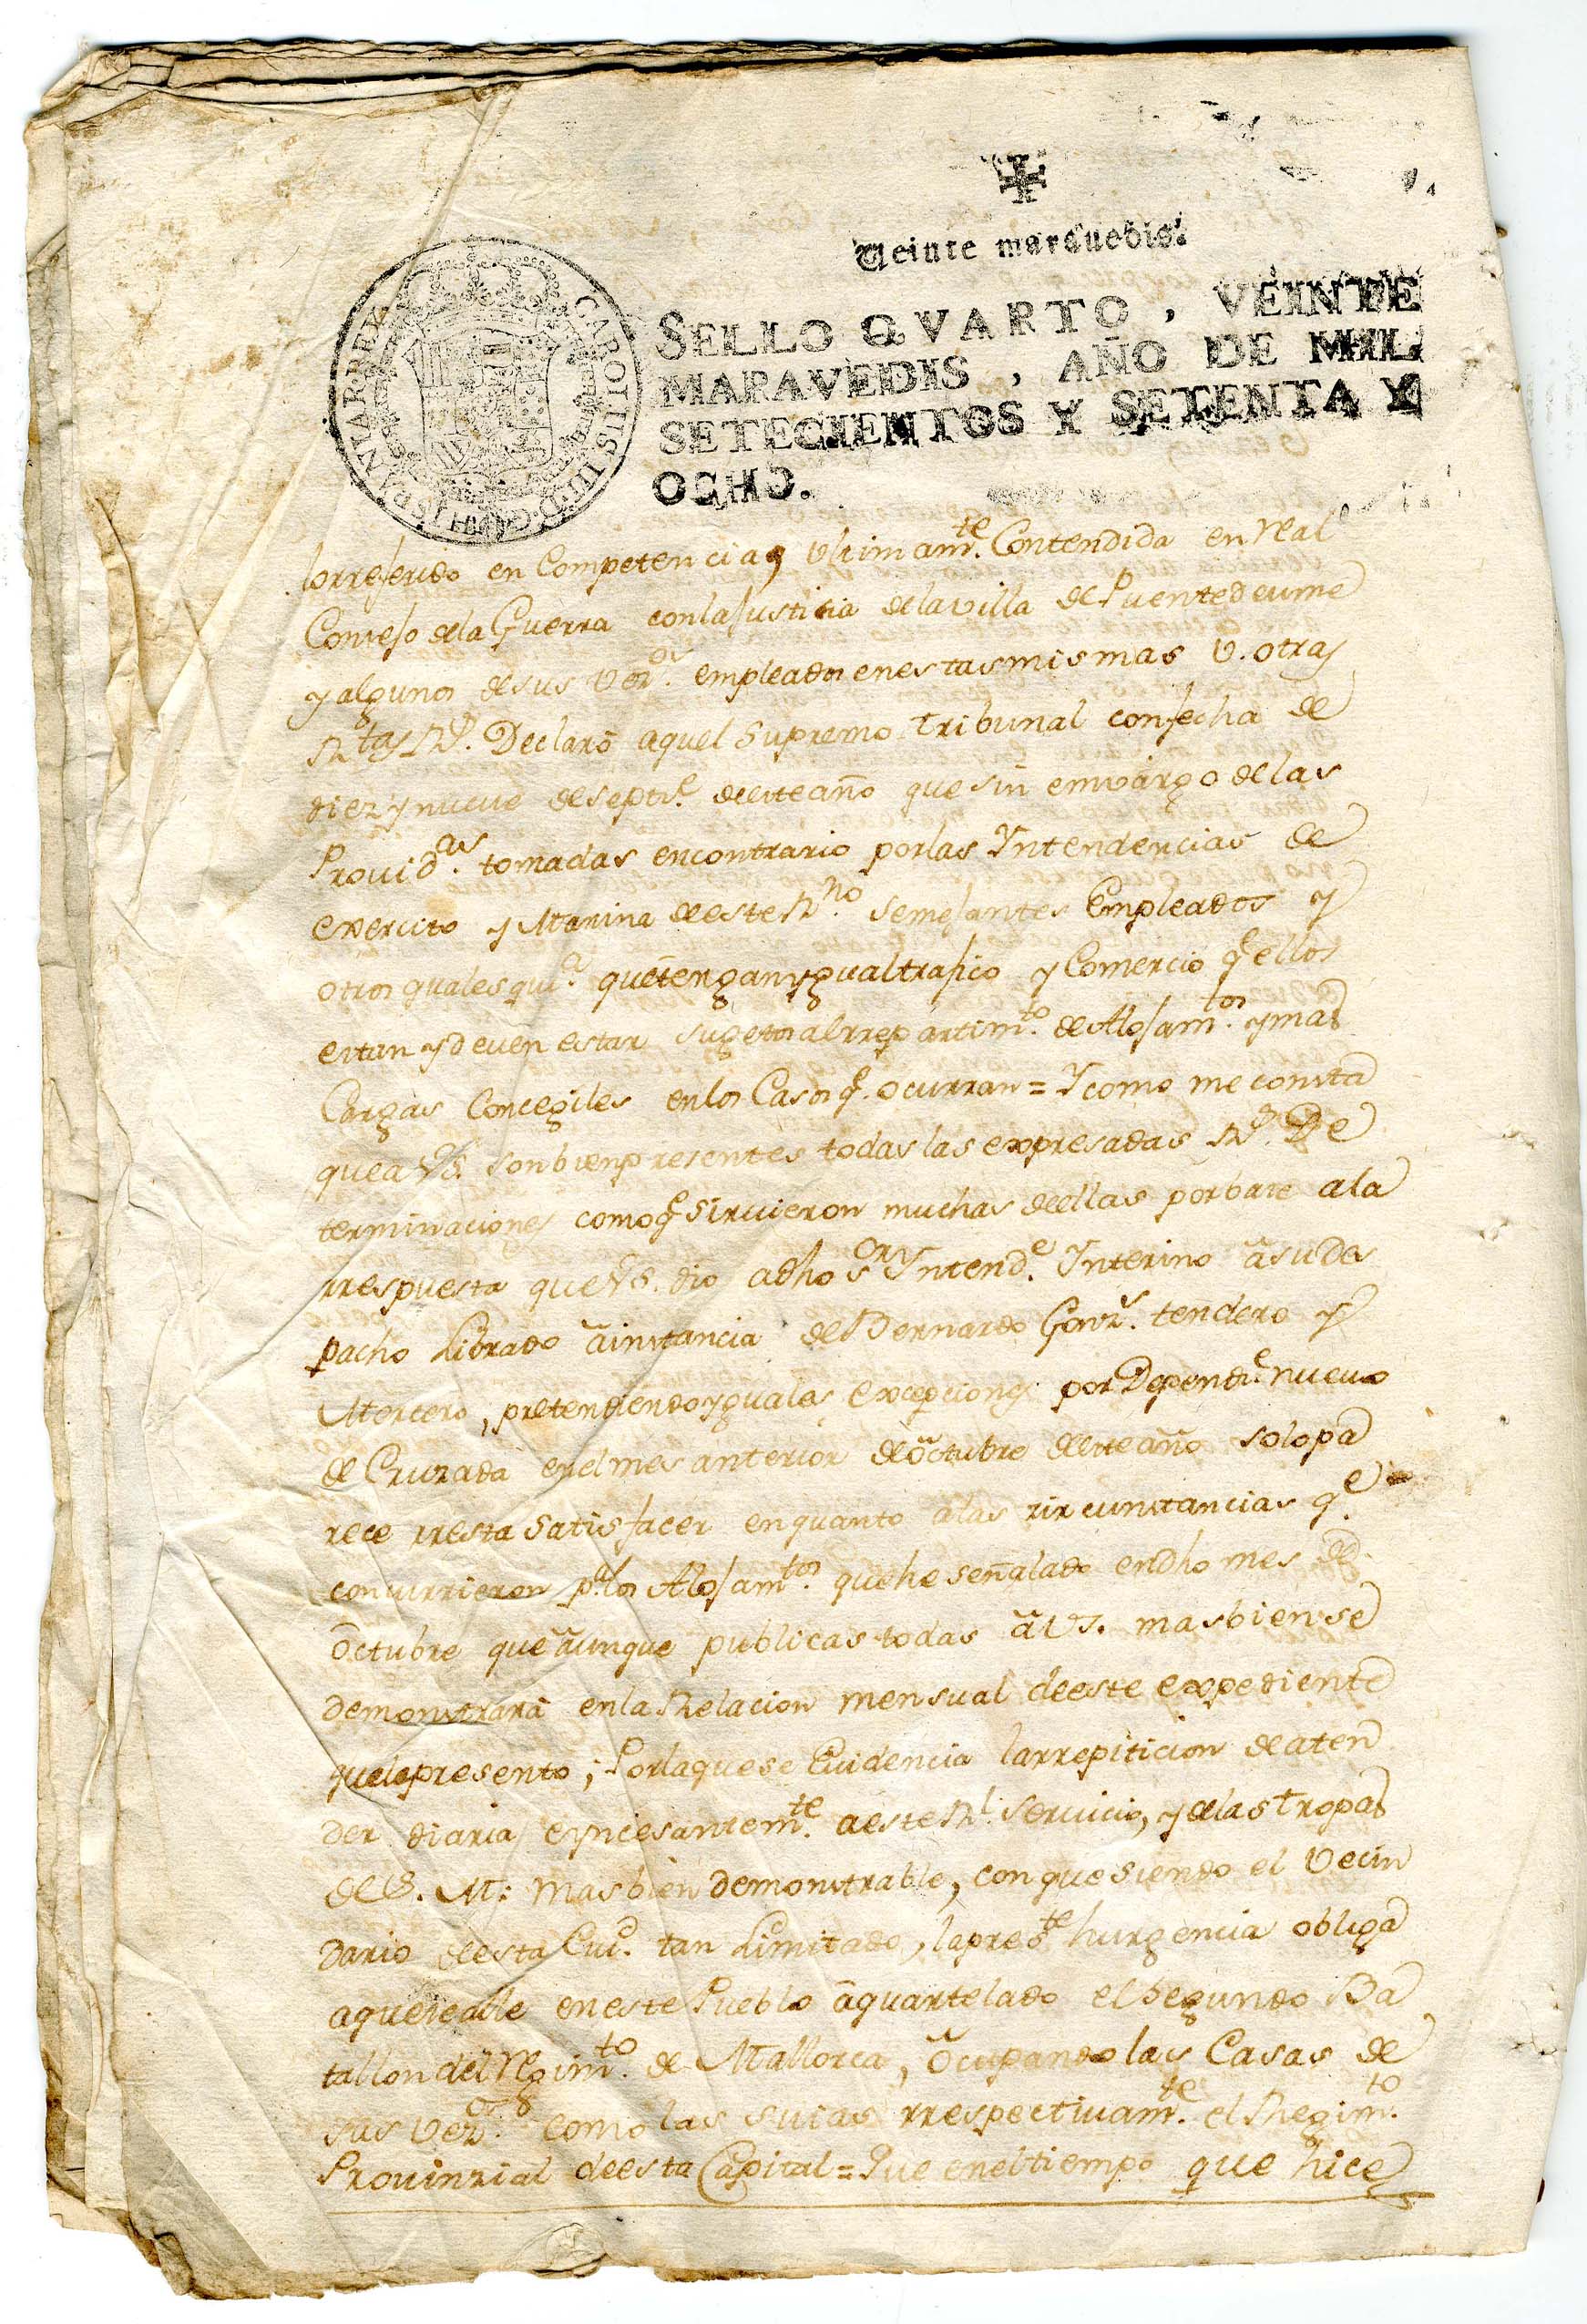 Veinte maravedis.
SELLO QVARTO, VEINTE
MARAVEDIS, AÑO DE MIL
SETECIENTOS Y SETENTA Y
OCHO.
CAROLUS III D G HISPANIAR REX
lorreferido en Competencia, vltimamte. Contendida en real
Consejo dela Guerra conlaJusticia delavilla de Puentedeume
y algunos desus Vezos. empleados enestasmismas v. otras
Rtas Rs. Declaró aquel Supremo Tribunal confecha de
diez y nueve desepte. desteaño que sin emvargo delas
Providas. tomadas encontrario porlas Yntendencias de
exercito y Marina deeste Rno. semejantes Empleados y
otros qualesquia. quetengan ygualtrafico y Comercio q ellos
estan y deven estar sugetos alrrepartimto. de Alojamtos. y mas
Cargas Concegiles enlos Casos q. ocurran = Y como me consta
quea VS. sonbien presentes todas las expresadas Rs. De
terminaciones comoq sirvieron muchas deellas por base ala
rrespuesta que VS. dio adho Sor Yntende. Ynterino à su des
pacho Librado à instancia de Bernardo Gonz. tendero y
Mercero, pretendiendo yguales excepciones por Dependte. nuevo
de Cruzada enelmes anterior deoctubre desteaño solopa
rece rresta satisfacer enquanto alas zircunstancias qe.
concurrieron pa. los Alojamtos. quehe señalado endho mes de
Octubre que aunque publicas todas à VS. masbiense
demonstrará enla Relacion mensual deeste expediente
quelepresento; Porlaquese Evidencia larrepiticion deaten
der diaria, eyncesantemte. aeste Rl. servicio, y delas tropas
de S. M: mas bien demonstrable, con que siendo el Vecin
dario deesta Ciud. tan Limitado, lapreste hurgencia obliga
aquesealle eneste Pueblo aquartelado el Segundo Ba
tallon del Rgimto. de Mallorca, ocupando las Casas de
sus Vezos. como las suias rrespectivamte. el Regimto.
Provinzial deesta Capital = Que eneltiempo que hice